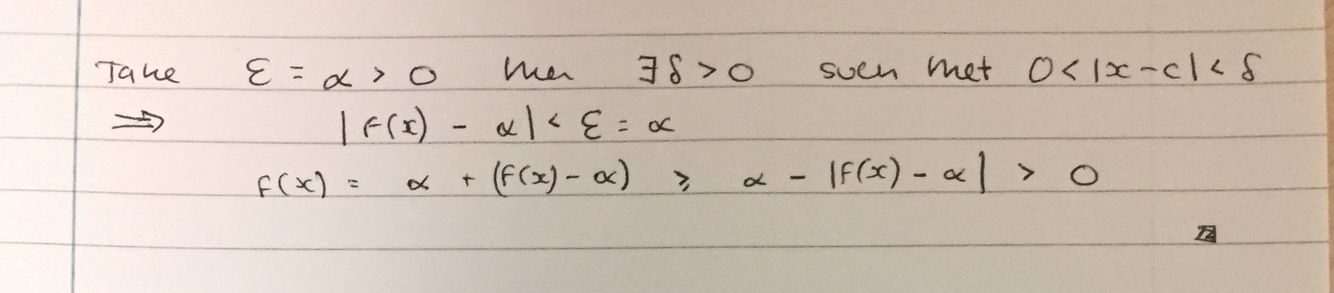 Take ε = α > 0 then ∃δ > 0 such that 0 < |x - c| < δ
⟹ |f(x) - α| < ε = α
f(x) = α + (f(x) - α) ≥ α - |f(x) - α| > 0